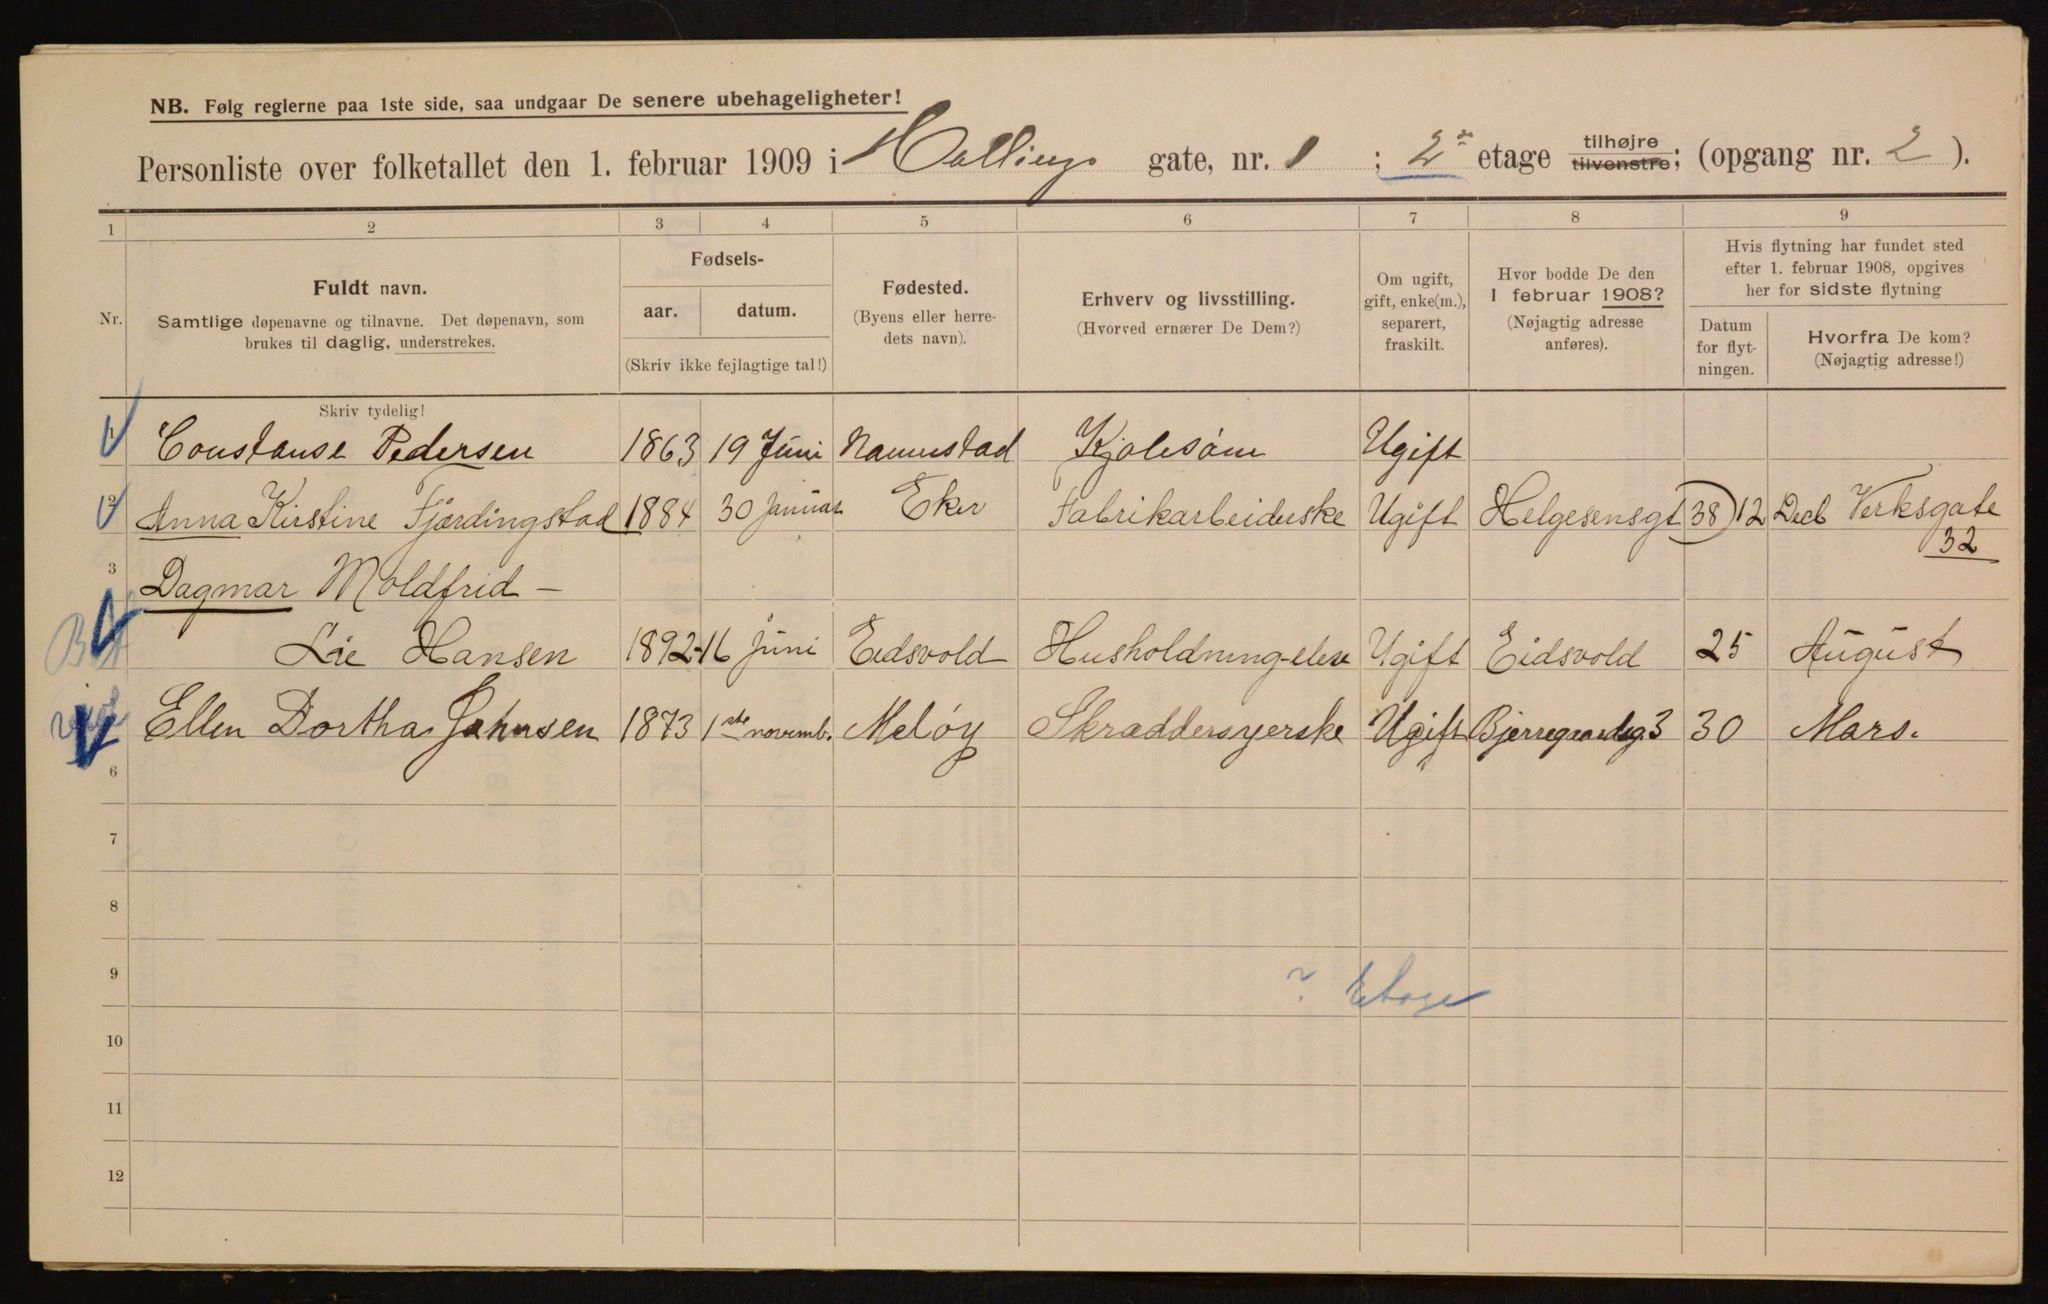 NB. Følg reglerne paa 1ste side, saa undgaar De senere ubehageligheter!
Personliste over folketallet den 1. februar 1909 i Hallings gate, nr. 1 ; 2 etage tilhøjre tilvenstre; (opgang nr. 2 ).
1 2 3 4 5 6 7 8 9
Nr.
Fuldt navn.
Samtlige døpenavne og tilnavne. Det døpenavn, som
brukes til daglig, understrekes.
Fødsels-
aar. datum.
(Skriv ikke fejlagtige tal!)
Fødested.
(Byens eller herre-
dets navn).
Erhverv og livsstilling.
(Hvorved ernærer De Dem?)
Om ugift,
gift, enke(m.),
separert,
fraskilt.
Hvor bodde De den
1 februar 1908?
(Nøjagtig adresse
anføres).
Hvis flytning har fundet sted
efter 1. februar 1908, opgives
her for sidste flytning
Datum
for flyt-
ningen.
Hvorfra De kom?
(Nøjagtig adresse!)
Skriv tydelig!
1 Constanse Pedersen 1863 19 Juni Nannestad Kjolesøm Ugift
2 Anna Kirstine Fjærdingstad 1884 30 Januar Eker Fabrikarbeiderske Ugift Helgesensgt 38 12 Decb Verksgate
32
3 Dagmar Moldfrid –
Lie Hansen 1892 16 Juni Eidsvold Husholdning-elev Ugift Eidsvold 25 August
Ellen Dortha Johnsen 1873 1ste novemb. Meløy Skræddersyerske Ugift Bjerregaardsg. 3 30 Mars.
6
7
8
9
? Etage
10
11
12